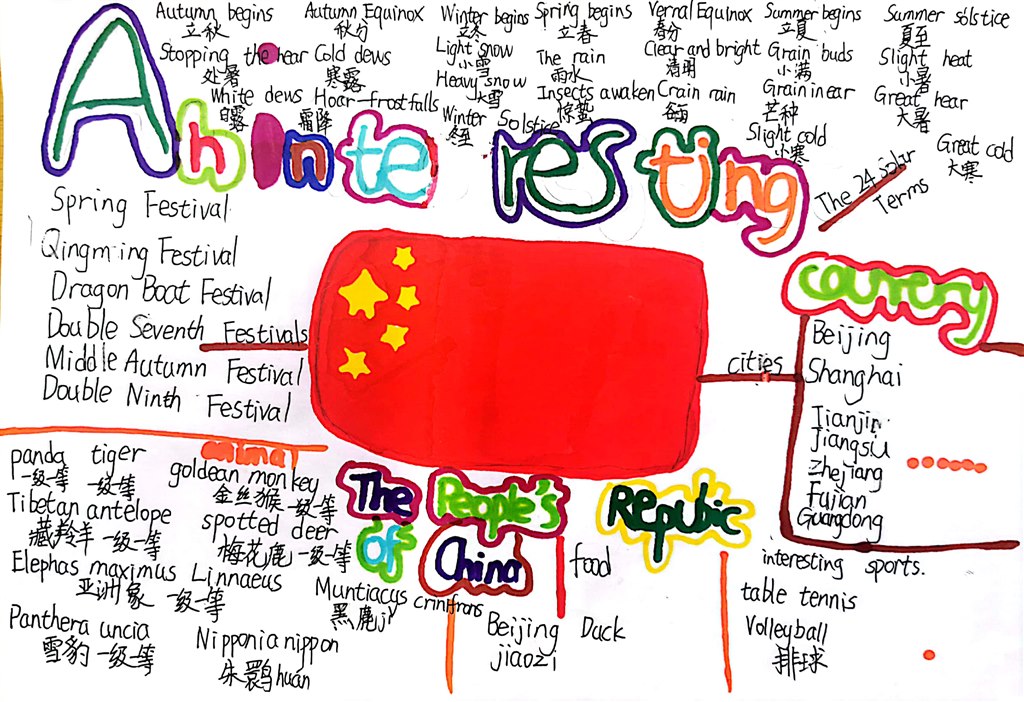 Autumn begins
立秋
Autumn Equinox
秋分
Winter begins
立冬
Spring begins
立春
Vernal Equinox
春分
Summer begins
立夏
Summer solstice
夏至
Stopping the hear
处暑
Cold dews
寒露
Light snow
小雪
The rain
雨水
Clear and bright
清明
Grain buds
小满
Slight heat
小暑
White dews
白露
Hoar-frost falls
霜降
Heavy snow
大雪
Insects awaken
惊蛰
Crain rain
谷雨
Grain in ear
芒种
Great hear
大暑
Winter Solstice
冬至
Slight cold
小寒
Great cold
大寒
The 24 solar
Terms
An interesting
country
Spring Festival
Qingming Festival
Dragon Boat Festival
Double Seventh Festivals
Middle Autumn Festival
Double Ninth Festival
cities
Beijing
Shanghai
Tianjin
Jiangsu
Zhejiang
Fujian
Guangdong
The People's Repubic
of China
animal
panda tiger
一级一等 一级一等
goldean monkey
金丝猴 一级一等
Tibetan antelope
藏羚羊 一级一等
spotted deer
梅花鹿 一级一等
Elephas maximus Linnaeus
亚洲象 一级一等
Muntiacus crinifrons
黑麂jǐ
Panthera uncia
雪豹 一级一等
Nipponia nippon
朱鹮huán
food
Beijing Duck
jiaozi
interesting sports.
table tennis
Volleyball
排球